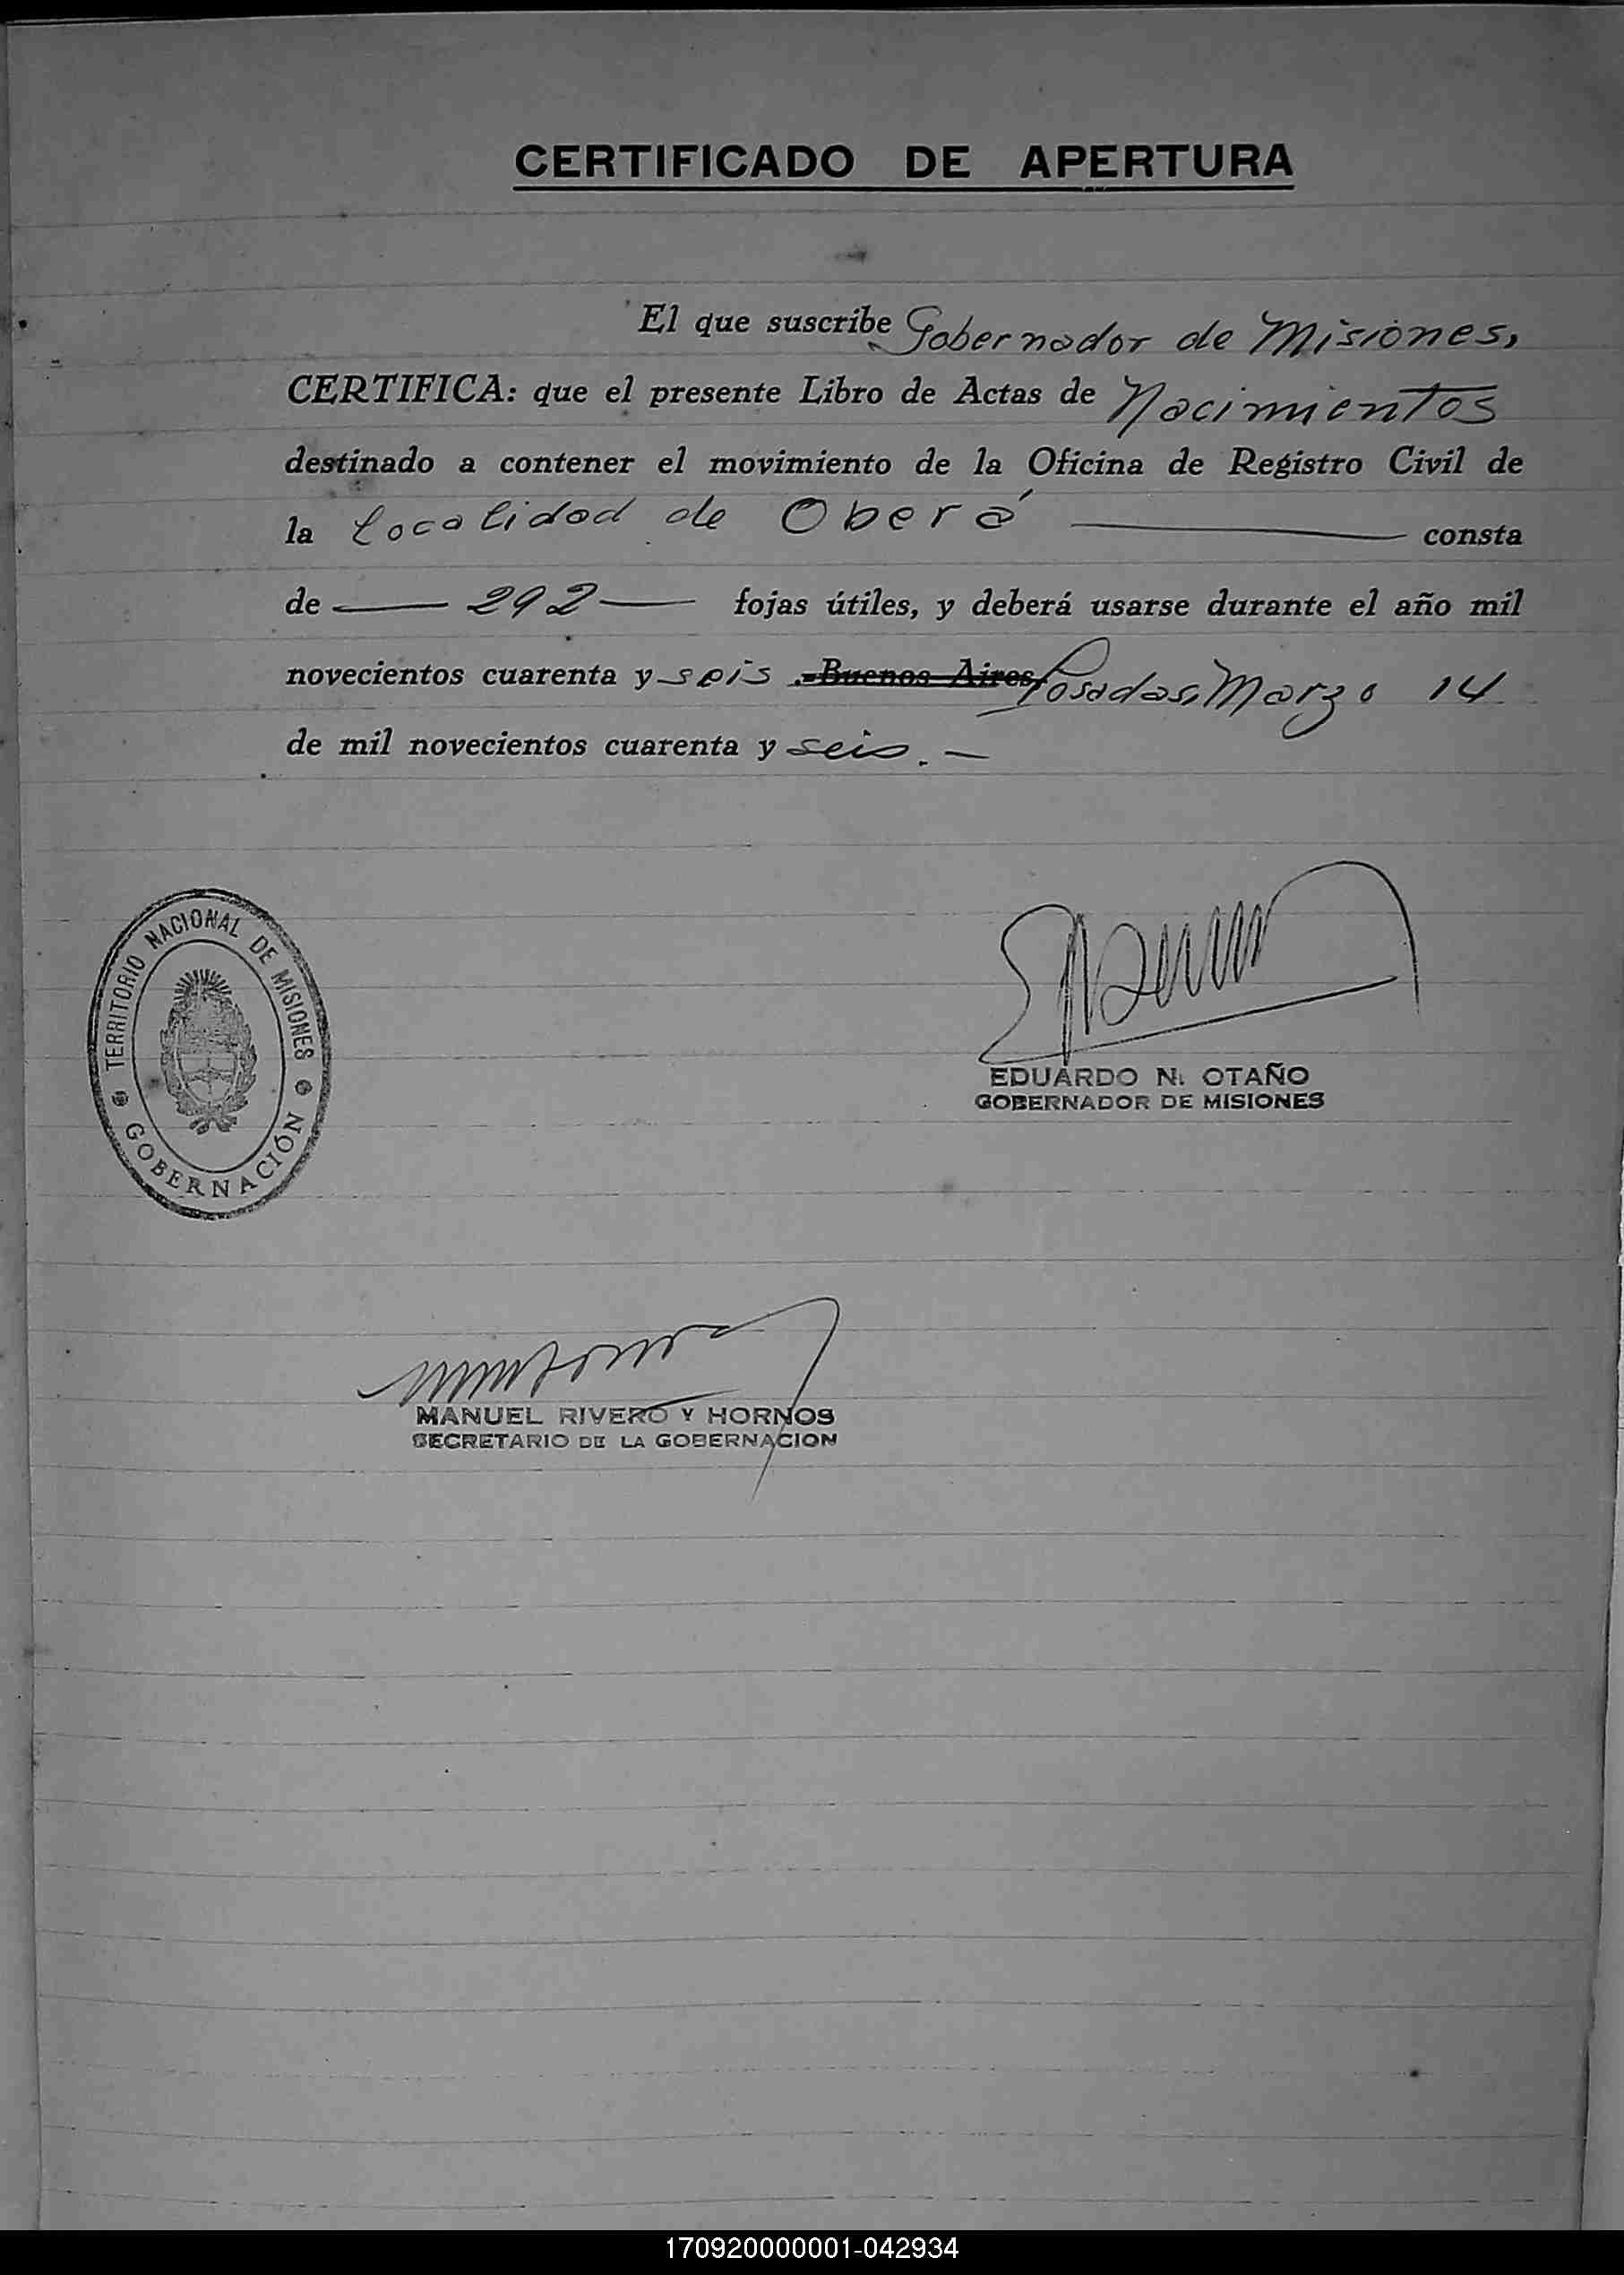 CERTIFICADO DE APERTURA
El que suscribe Gobernador de Misiones,
CERTIFICA: que el presente Libro de Actas de Nacimientos
destinado a contener el movimiento de la Oficina de Registro Civil de
la Localidad de Oberá — consta
de — 292 — fojas útiles, y deberá usarse durante el año mil
novecientos cuarenta y seis .-Buenos Aires, Posadas, Marzo 14
de mil novecientos cuarenta y seis. —
TERRITORIO NACIONAL DE MISIONES
GOBERNACIÓN
EDUARDO N. OTAÑO
GOBERNADOR DE MISIONES
MANUEL RIVERO Y HORNOS
SECRETARIO DE LA GOBERNACION
170920000001-042934